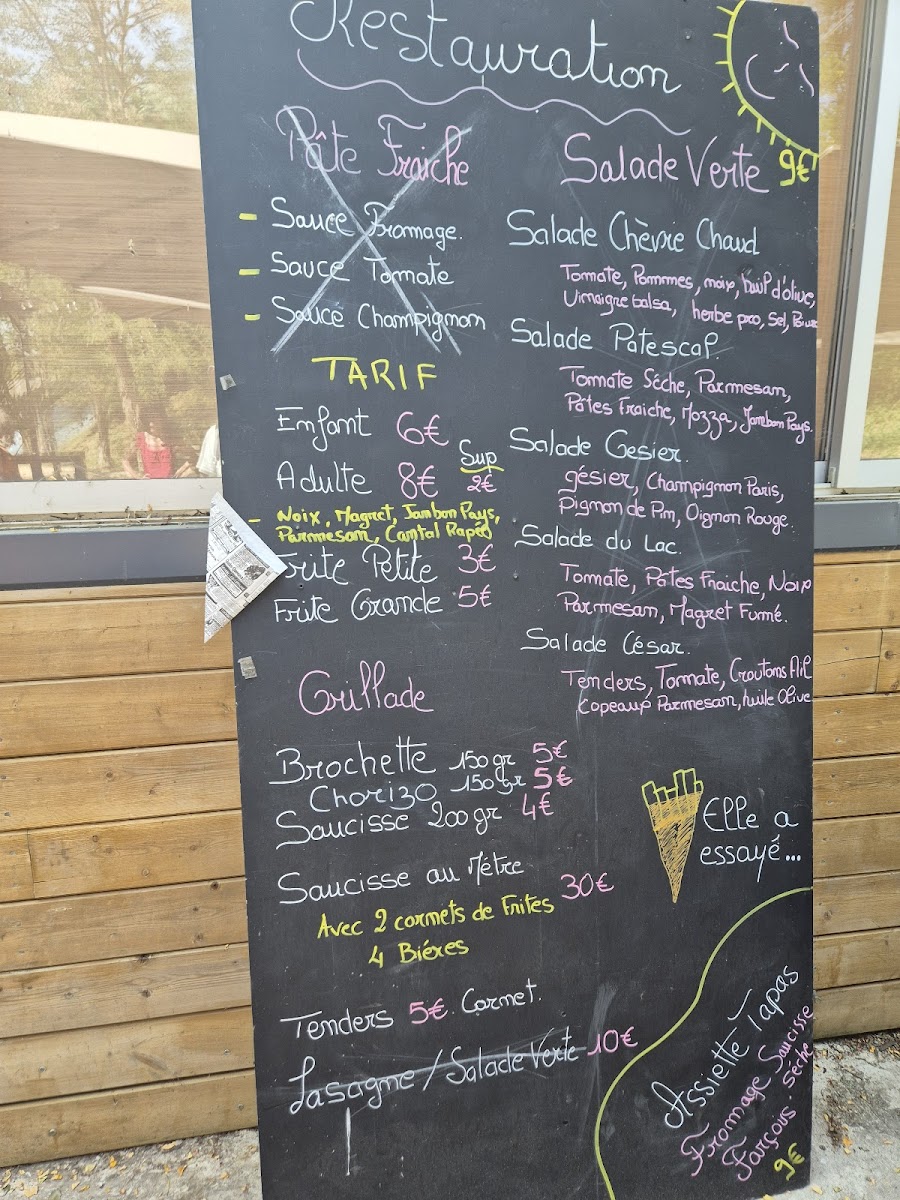 Restauration
Pâte Fraiche
- Sauce Fromage.
- Sauce Tomate
- Sauce Champignon
TARIF
Enfant 6€
Adulte 8€ Sup 2€
- Noix, Magret, Jambon Pays,
Parmesan, Cantal Rapé
Frite Petite 3€
Frite Grande 5€
Grillade
Brochette 150gr 5€
Chorizo 150gr 5€
Saucisse 200gr 4€
Saucisse au Métre 30€
Avec 2 cornets de Frites
4 Biéres
Tenders 5€ Cornet.
Lasagne / Salade Verte 10€
Salade Verte 9€
Salade Chèvre Chaud
Tomate, Pommes, noix, huil d'olive,
Vinaigre balsa, herbe pro, Sel, Poivre
Salade Patescap.
Tomate Sèche, Parmesan,
Pâtes Fraiche, Mozza, Jambon Pays.
Salade Gesier.
gésier, Champignon Paris,
Pignon de Pin, Oignon Rouge.
Salade du Lac.
Tomate, Pâtes Fraiche, Noix
Parmesan, Magret Fumé.
Salade César.
Tenders, Tomate, Croutons Ail
Copeaux Parmesan, huile Olive
Elle a
essayé...
Assiette Tapas
Fromage Saucisse
Farçous. Séche
9€